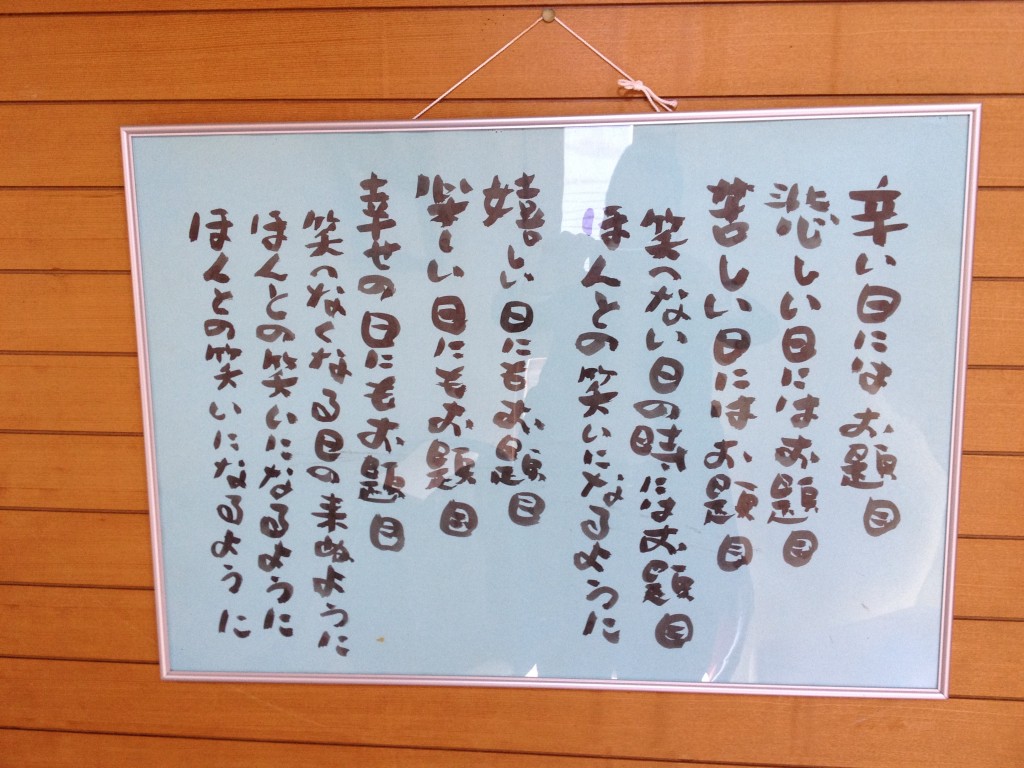 辛い日にはお題目
悲しい日にはお題目
苦しい日にはお題目
笑へない日の時にはお題目
ほんとの笑いになるように
嬉しい日にもお題目
楽しい日にもお題目
幸せの日にもお題目
笑へなくなる日の来ぬように
ほんとの笑いになるように
ほんとの笑いになるように